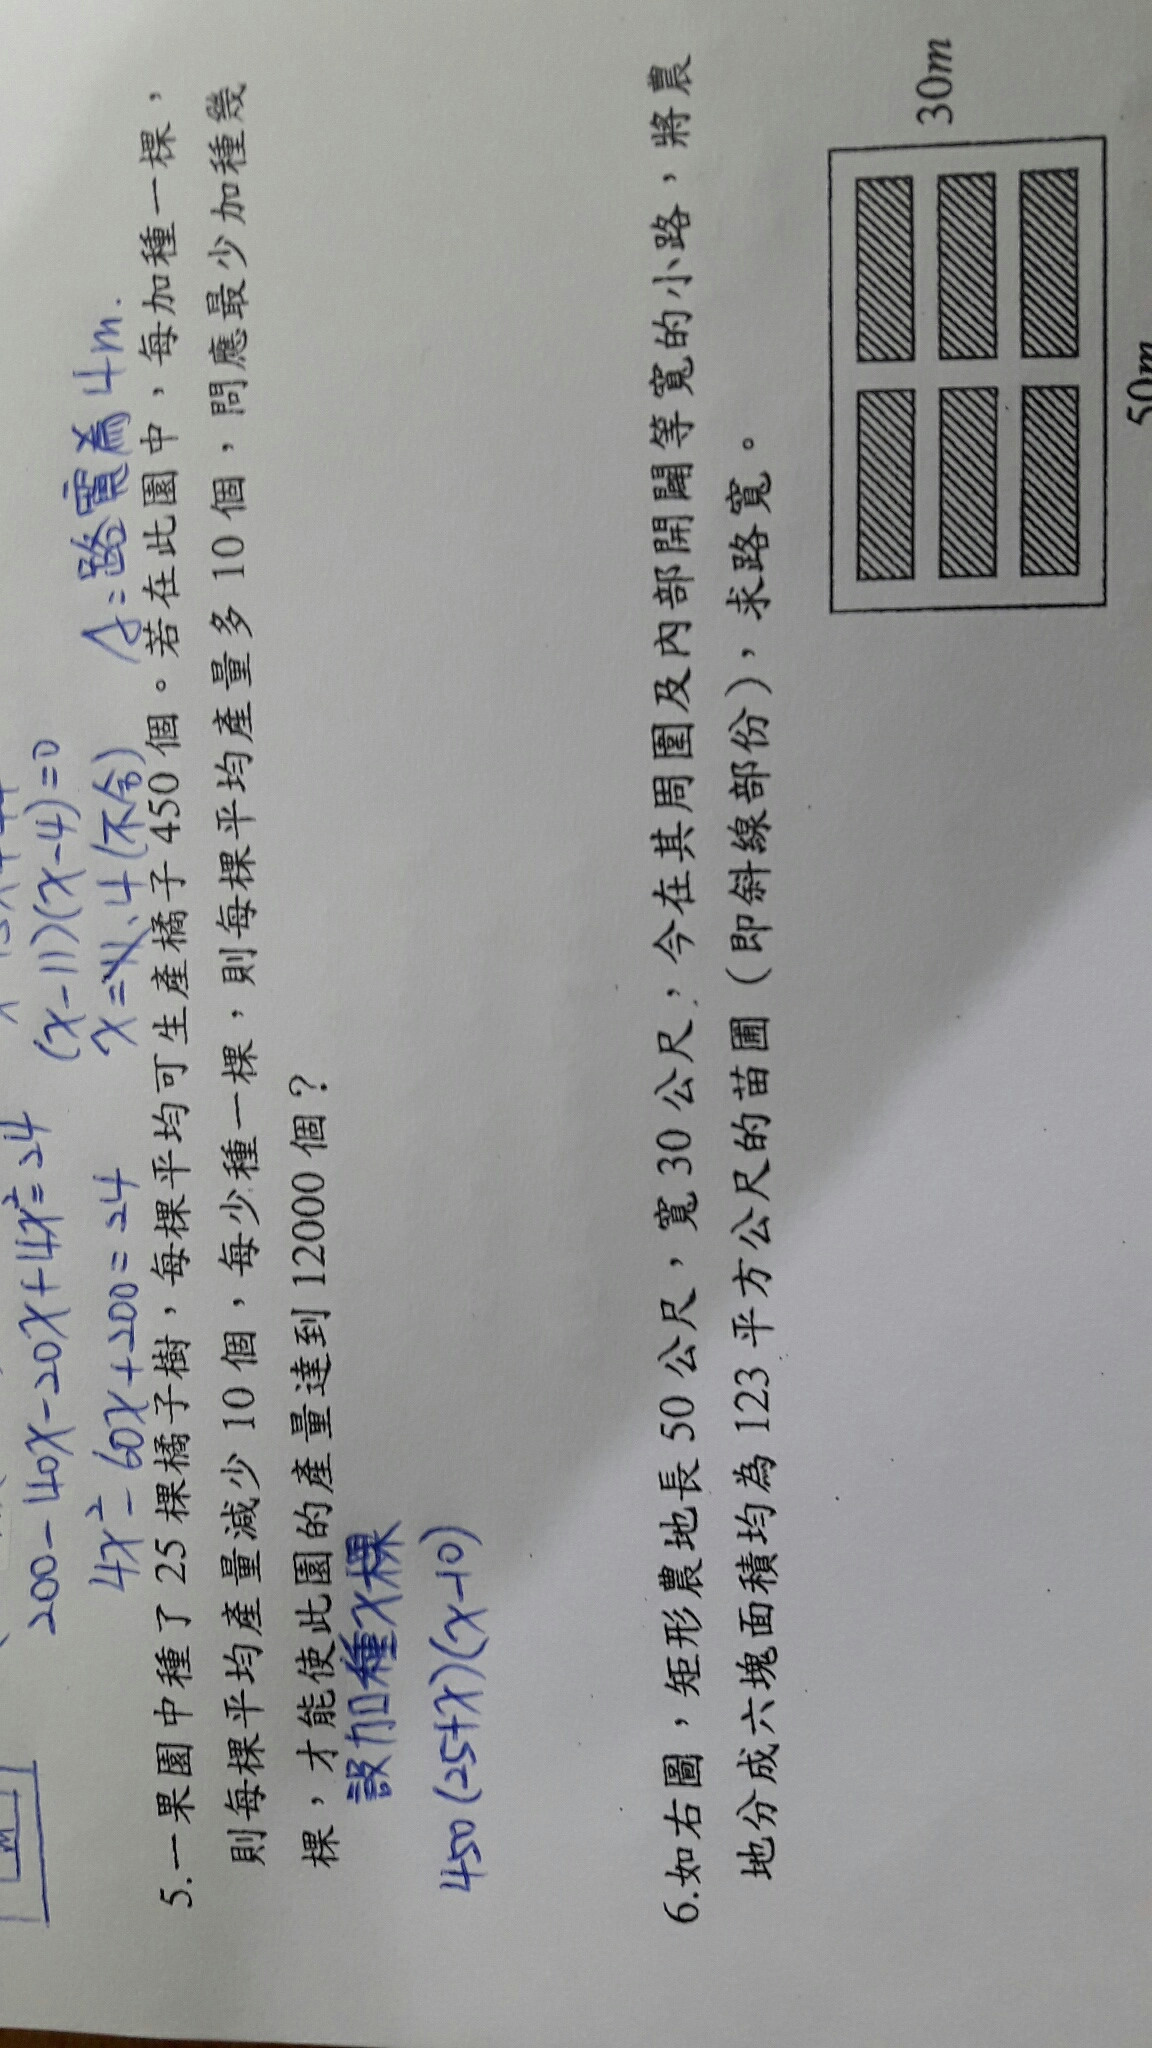 200-40x-20x+4x²=24
4x²-60x+200=24
(x-11)(x-4)=0
x=11、4(不合)
A:路寬為4m.
5.一果園中種了25棵橘子樹,每棵平均可生產橘子450個。若在此園中,每加種一棵,
則每棵平均產量減少10個,每少種一棵,則每棵平均產量多10個,問應最少加種幾
棵,才能使此園的產量達到12000個?
設加種x棵
450(25+x)(x-10)
6.如右圖,矩形農地長50公尺,寬30公尺,今在其周圍及內部開闢等寬的小路,將農
地分成六塊面積均為123平方公尺的苗圃(即斜線部份),求路寬。
30m
50m